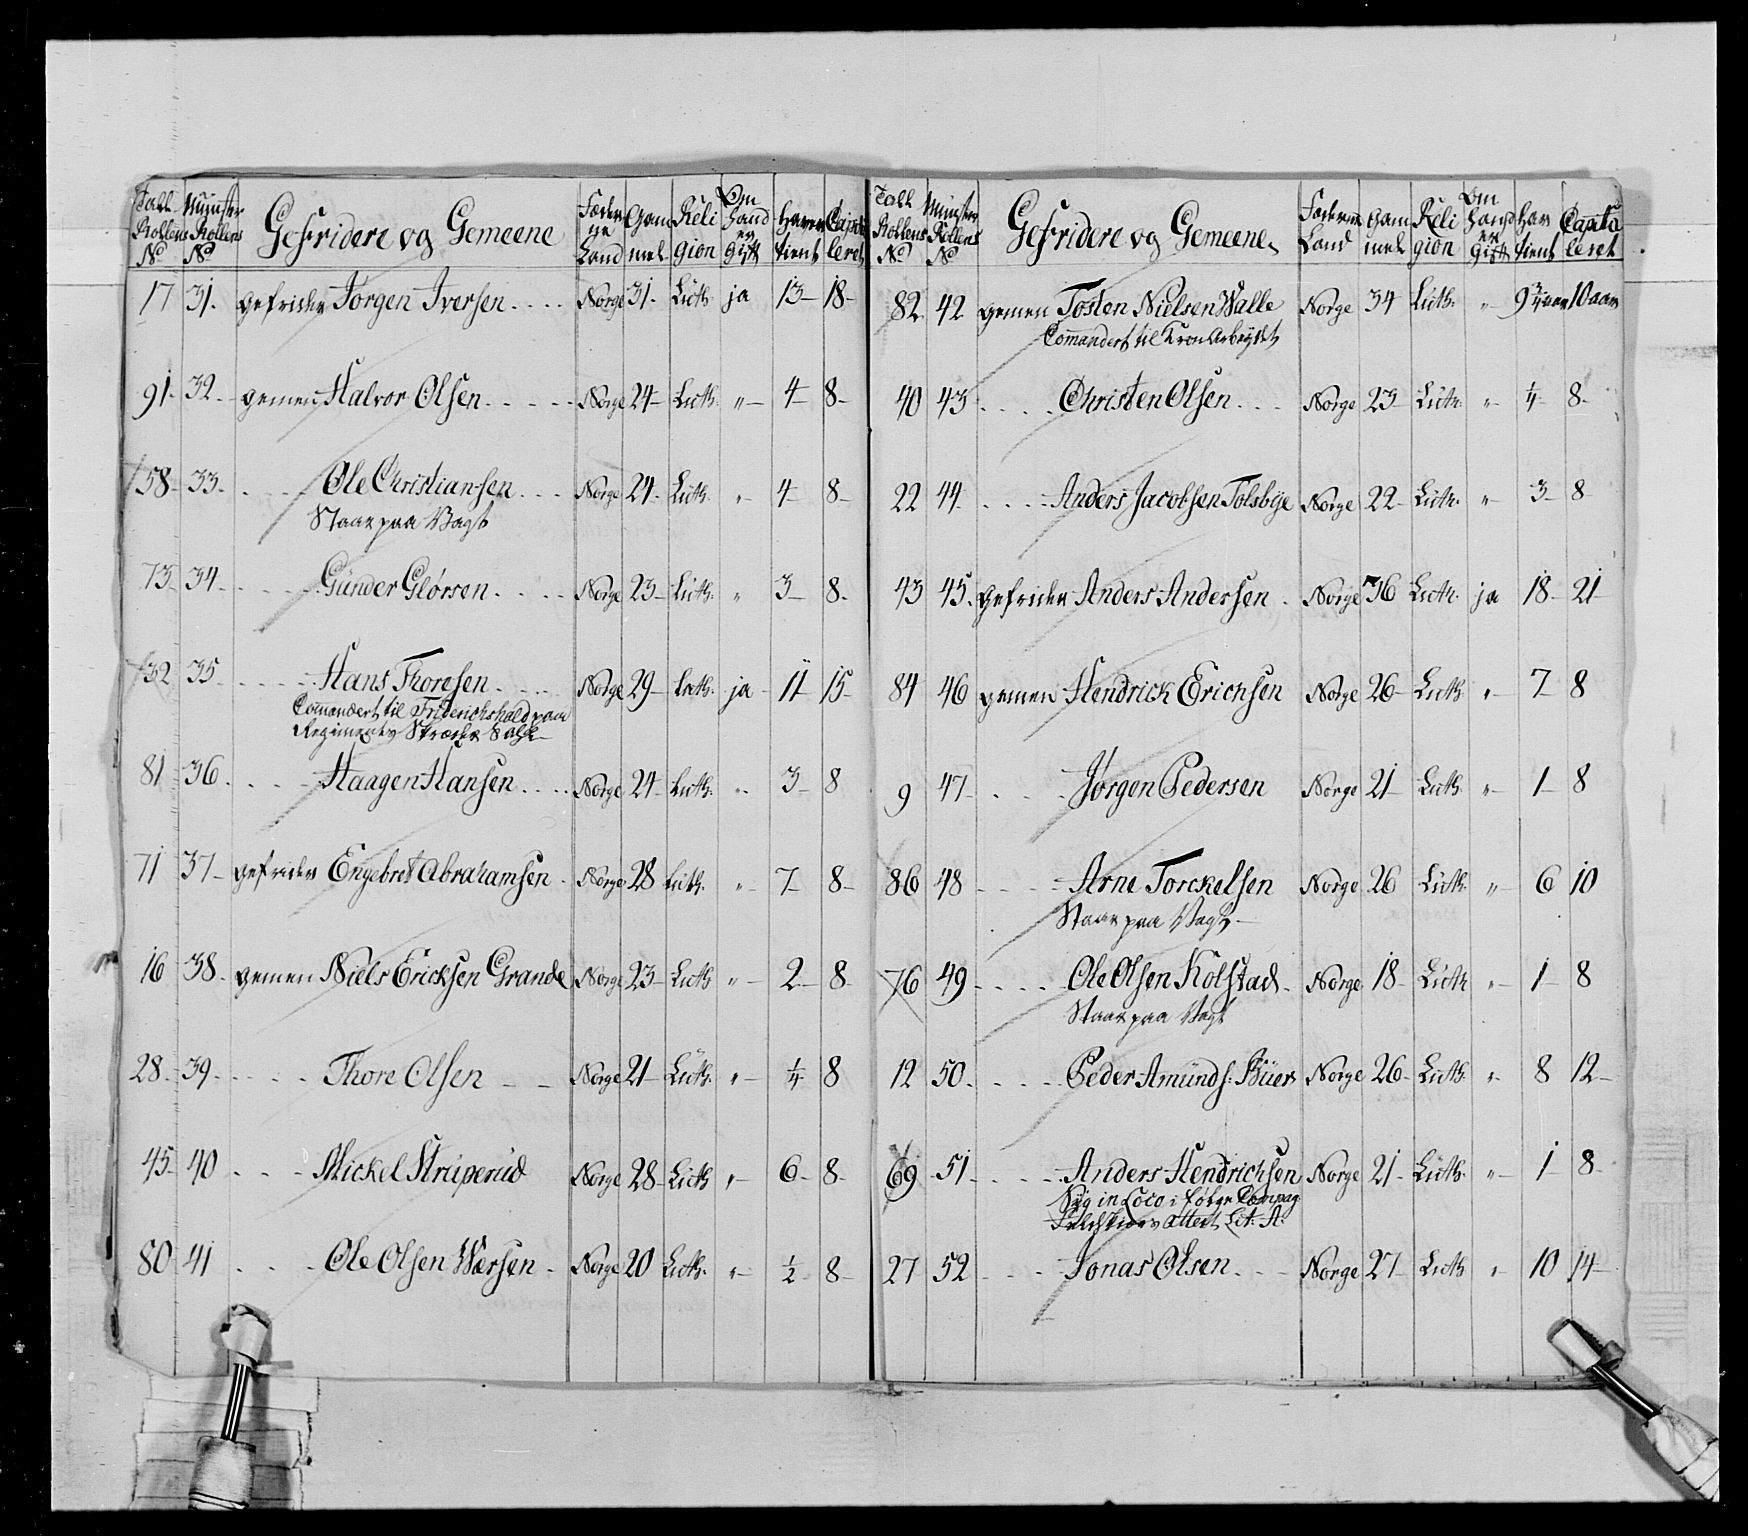 Tall Rollens No | Münster Rollens No | Gefridere og Gemeene | Føder ne Land | Gam mel | Reli gion | Om Hand er Gift | Haver tient | Capitu leret
17 31. gefrider Jørgen Iversen.... Norge 31. Luth ja 13 18
91. 32. gemen Halvor Olsen..... Norge 24 Luth. " 4 8
58 33. .... Ole Christiansen... Norge 24 Luth. " 4 8
Staar paa Vagt
73 34. ..... Günder Glørsen.... Norge 23 Luth. " 3 8.
32 35. ..... Hans Thoresen.... Norge 29 Luth. ja 11 15
Comandert til Friderichshald paa
Regimentz
81 36. .... Haagen Hansen.... Norge 24 Luth. " 3 8
71 37 gefrider Engebret Abrahamsen. Norge 28 Luth. " 7 8
16 38. gemen Niels Ericksen Grande Norge 23 Luth " 2 8
28. 39. .... Thore Olsen Norge 21 Luth. " 1/4 8
45. 40 ... Mickel Struperud Norge 28 Luth " 6 8
80 41 ... Ole Olsen Wærsen. Norge 20 Luth. " 1/2 8
Tall Rollens No | Münster Rollens No | Gefridere og Gemeene | Føderne Land | Gam mel | Reli gion | Om Hand er Gift | Har tient | Capitu leret
82 42 gemen Tosten Nielsen Walle Norge 34 Luth. " 9 3/4 aar 10 aar
Comandert til Kron Arbeydet
40 43 .... Christen Olsen... Norge 23 Luth. " 1/4 8
22 44 .... Anders Jacobsen Tolsbye Norge 22 Luth. " 3 8
43 45. gefrider Anders Andersen. Norge 36 Luth. ja 18 21
84 46 gemen Hendrick Erichsen Norge 26 Luth. " 7 8
9 47 ... Jørgen Pedersen Norge 21 Luth. " 1 8
86 48 .... Arne Torckelsen Norge 26 Luth. " 6 10
Staar paa Vagt
76 49 .... Ole Olsen Kolstad. Norge 18 Luth " 1 8
Staar paa Vagt
12 50. .... Peder Amünds: Büer Norge 26 Luth. " 8 12
69 51 .... Anders Hendrichsen Norge 21 Luth. " 1 8
Syg in Loco i følge Compag
Attest Lit. A:
27 52 ... Jonas Olsen... Norge 27 Luth " 10 14